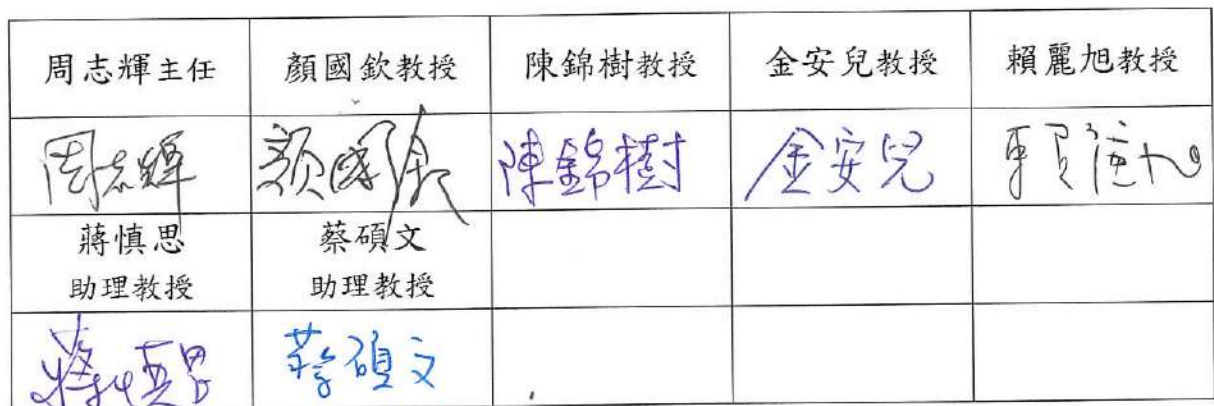 周志輝主任 顏國欽教授 陳錦樹教授 金安兒教授 賴麗旭教授
周志輝 顏國欽 陳錦樹 金安兒 賴麗旭
蔣慎思 蔡碩文
助理教授 助理教授
蔣慎思 蔡碩文